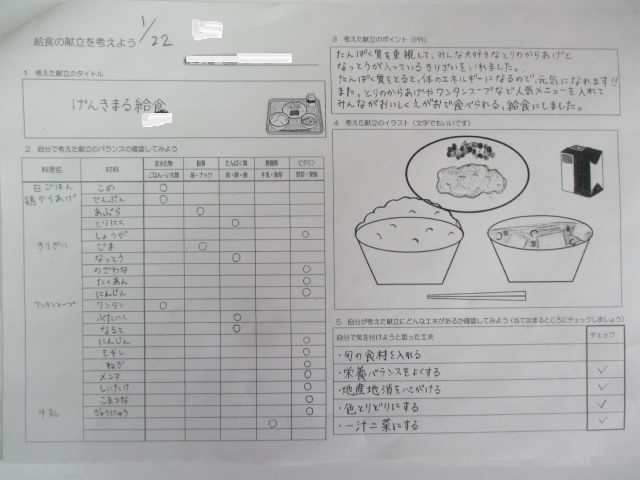 給食の献立を考えよう 1/22
1 考えた献立のタイトル
げんきまる給食
2 自分で考えた献立のバランスの確認してみよう
料理名 材料 炭水化物 脂質 たんぱく質 無機質 ビタミン
白ごはん こめ ○
鶏からあげ でんぷん ○
あぶら ○
とりにく ○
しょうが ○
きりざい ごま ○
なっとう ○
のざわな ○
たくあん ○
にんじん ○
ワンタンスープ ワンタン ○
ぶたにく ○
なると ○
にんじん ○
モヤシ ○
ねぎ ○
メンマ ○
しいたけ ○
こまつな ○
牛乳 ぎゅうにゅう ○
3 考えた献立のポイント(PR)
たんぱく質を重視して、みんな大好きなとりのからあげと
なっとうが入っているきりざいをいれました。
たんぱく質をとると、体のエネルギーになるので、元気になれます!!
また、とりのからあげやワンタンスープなど人気メニューを入れて
みんながおいしくえがおで食べられる、給食にしました。
4 考えた献立のイラスト(文字でもいいです)
5 自分が考えた献立にどんな工夫があるか確認してみよう(当てはまるところにチェックしましょう)
自分で気を付けようと思った工夫 チェック
・旬の食材を入れる
・栄養バランスをよくする ✓
・地産地消を心がける ✓
・色とりどりにする ✓
・一汁二菜にする ✓